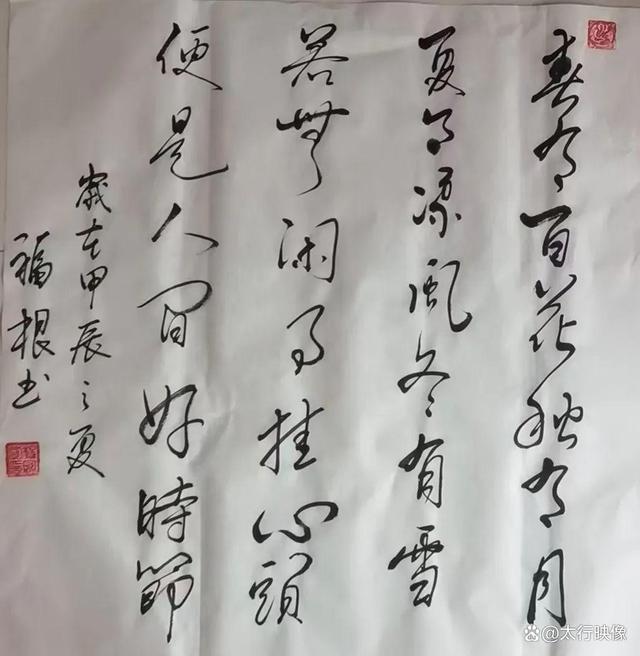 春有百花秋有月
夏有凉风冬有雪
若無闲事挂心頭
便是人间好時節
歲在甲辰之夏
福根书
太行映像